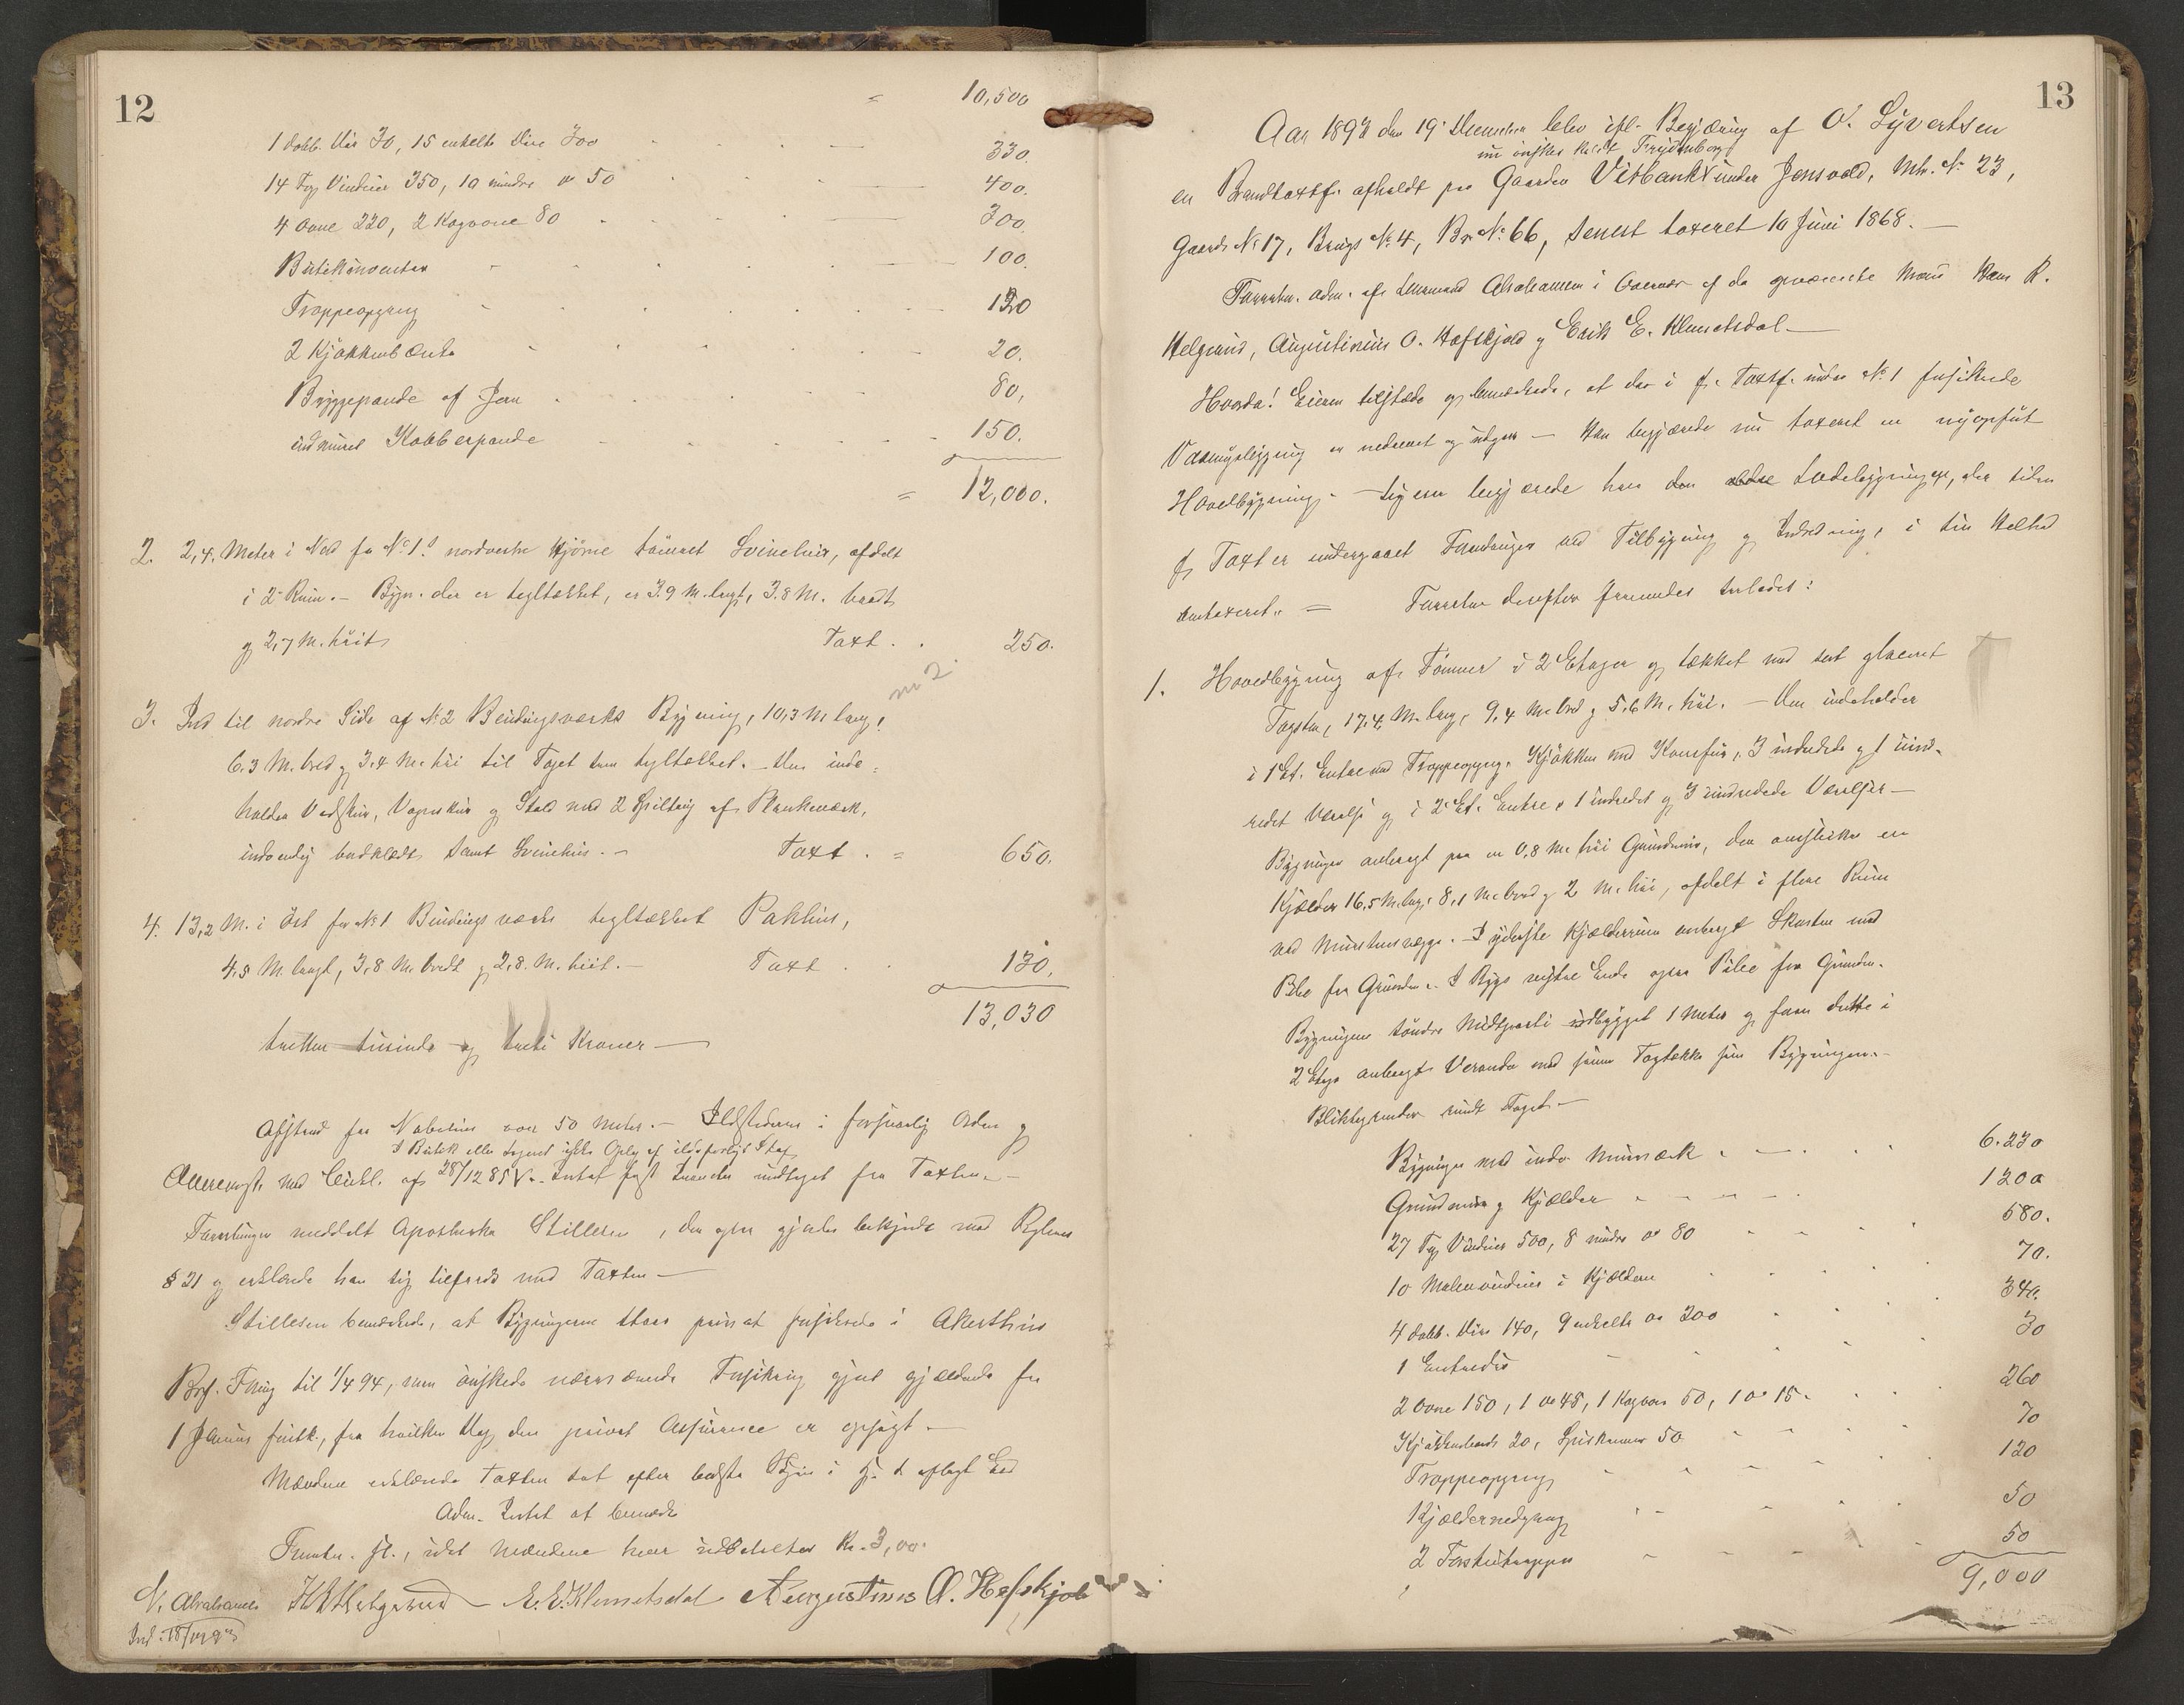 12
= 10,500
1 dobb. Dør 30, 15 enkelte Döre 300 330.
14 Fag Vinduer 350, 10 mindre ov 50 400.
4 Ovne 220, 2 Kogovne 80 300.
Butikinventar 100.
Trappeopgang 120
2 Kjøkkenbænke 20.
Bryggepande af Jern 80,
indmuret Kobberpande 150.
= 12,000.
2. 2,4. Meter i Nord fra No 1s nordvestre Hjörne tömret Svinehus, afdelt
i 2 Rum. - Bygn. der er tegltækket, er 3.9 M. langt, 3.8 M. bredt
og 2,7 M. høit Taxt . . 250.
no 2.
3. Ind til nordre Side af No 2 Bindingsværks Bygning, 10,3 M. lang,
6.3 M. bred og 3.4 M. høi til Taget som tegltækket. - Den inde=
holder Vedskur, Vognskur og Stald med 2 Spiltoug af Plankeværk,
indvendig bordklædt samt Svinehus. - Taxt . = 650.
4. 13,2 M. i Öst for No 1 Bindingsværks tegltækket Pakhus,
4.8 M. langt, 3,8 M. bredt og 2,8. M. höit. - Taxt . . 130.
13,030
tretten tusinde og treti Kroner —
Afstand fra Nabohus over 50 Meter. - Ildstederne i forsvarlig Orden og
I Butik eller Lageret ikke Oplag af ildsfarligt Stof
Overensst. med Cirkl. af 28/12 85 V. - Intet fast Inventar undtaget fra Taxten. -
Forretningen meddelt Apotheker Stillesen, der ogsaa gjordes bekjendt med Reglernes
§ 21 og erklærede han sig tilfreds med Taxten —
Stillesen bemærkede, at Bygningerne staar privat forsikrede i Akershus
Brf. Forsng til 1/4 94, men önskede nærværende Forsikring gjort gjældende fra
1 Januar förstk., fra hvilken Dag den privat Assurance er opsagt. -
Mændene erklærede Taxten sat efter bedste Skjön i H. t. aflagt Ed
Adm. Intet at bemærke
Forretn. sl., idet Mændene hver udbetaltes Kr. 3,00.
N. Abrahamsen H R Helgerud - E. E. Klemetsdal Augustinus O. Hafskjold
Ind. 18/
13
Aar 1893 den 19. December blev ifl. Begjæring af O. Syvertsen
nu önskes kaldt Frydenborg
en Brandtaxtf. afholdt paa Gaarden Vitbank V under Jonsvold, Mtr. No 23,
Gaards No 17, Brugs No 4, Br. No 66, senest taxeret 10 Juni 1868. —
Forretn. adm. af Lensmand Abrahamsen i Overvær af de opnævnte Mænd Hans R.
Helgerud, Augustinus O. Hafskjold og Erik E. Klemetsdal —
Hvorda! Eieren tilstede og bemærkede, at den i f. Taxtf. under No 1 forsikrede
Vaaningsbygning er nedrevet og udgaar — Han begjærede nu taxeret en nyopført
Hovedbygning. — Ligesaa begjærede han den ældre Ladebygning, der siden
f. Taxt er undergaaet Forandringer ved Tilbygning og Indredning, i sin Helhed
omtaxeret. = Forretn. derefter fremmedes saaledes:
1. Hovedbygning af Tömmer i 2 Etager og tækket med sort glaseret
Tagsten, 17.4. M. lang, 9,4 M. bred og 5.6 M. höi. — Den indeholder
i 1 Et. Entre med Trappeopgang, Kjökken med Komfur, 3 indredede og 1 uind-
redet Værelse og i 2 Et. Entre, 1 indredet og 3 uindredede Værelser —
Bygningen anbragt paa en 0,8 M. höi Grundmur, der omslutter en
Kjælder 16,5 M. lang, 8,1 M. bred og 2 M. höi, afdelt i flere Rum
ved Murstensvægge. - I yderste Kjælderrum anbragt Skorsten med
Pibe fra Grunden. - I Bygs vestre Ende ogsaa Pibe fra Grunden.
Bygningens söndre Midtparti udbygget 1 Meter og foran dette i
2 Etage anbragt Veranda med samme Tagtække som Bygningen. -
Bliktagrender rundt Taget. —
Bygningen med indre Murværk 6.230
Grundmur og Kjælder 1200
27 Fag Vinduer 500, 8 mindre ov 80 580.
10 Malervinduer i Kjælderen 70.
4 dobb. Döre 140, 9 enkelte ov 200 340.
1 Entredör 30
2 Ovne 150, 1 ov 45, 1 Kogovn 50, 1 ov 15. 260
Kjøkkenbænk 20, Spiskammer 50 70
Trappeopgang 120
Kjældernedgang 50
2 Forstutrapper 50
9,000